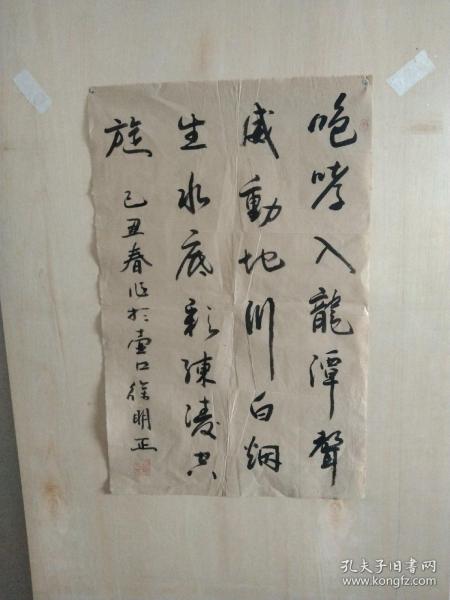 咆哮入龍潭聲
威動地川白烟
生水底彩練凌空
旋 己丑春作於壺口徐明正
孔夫子旧书网
www.kongfz.com